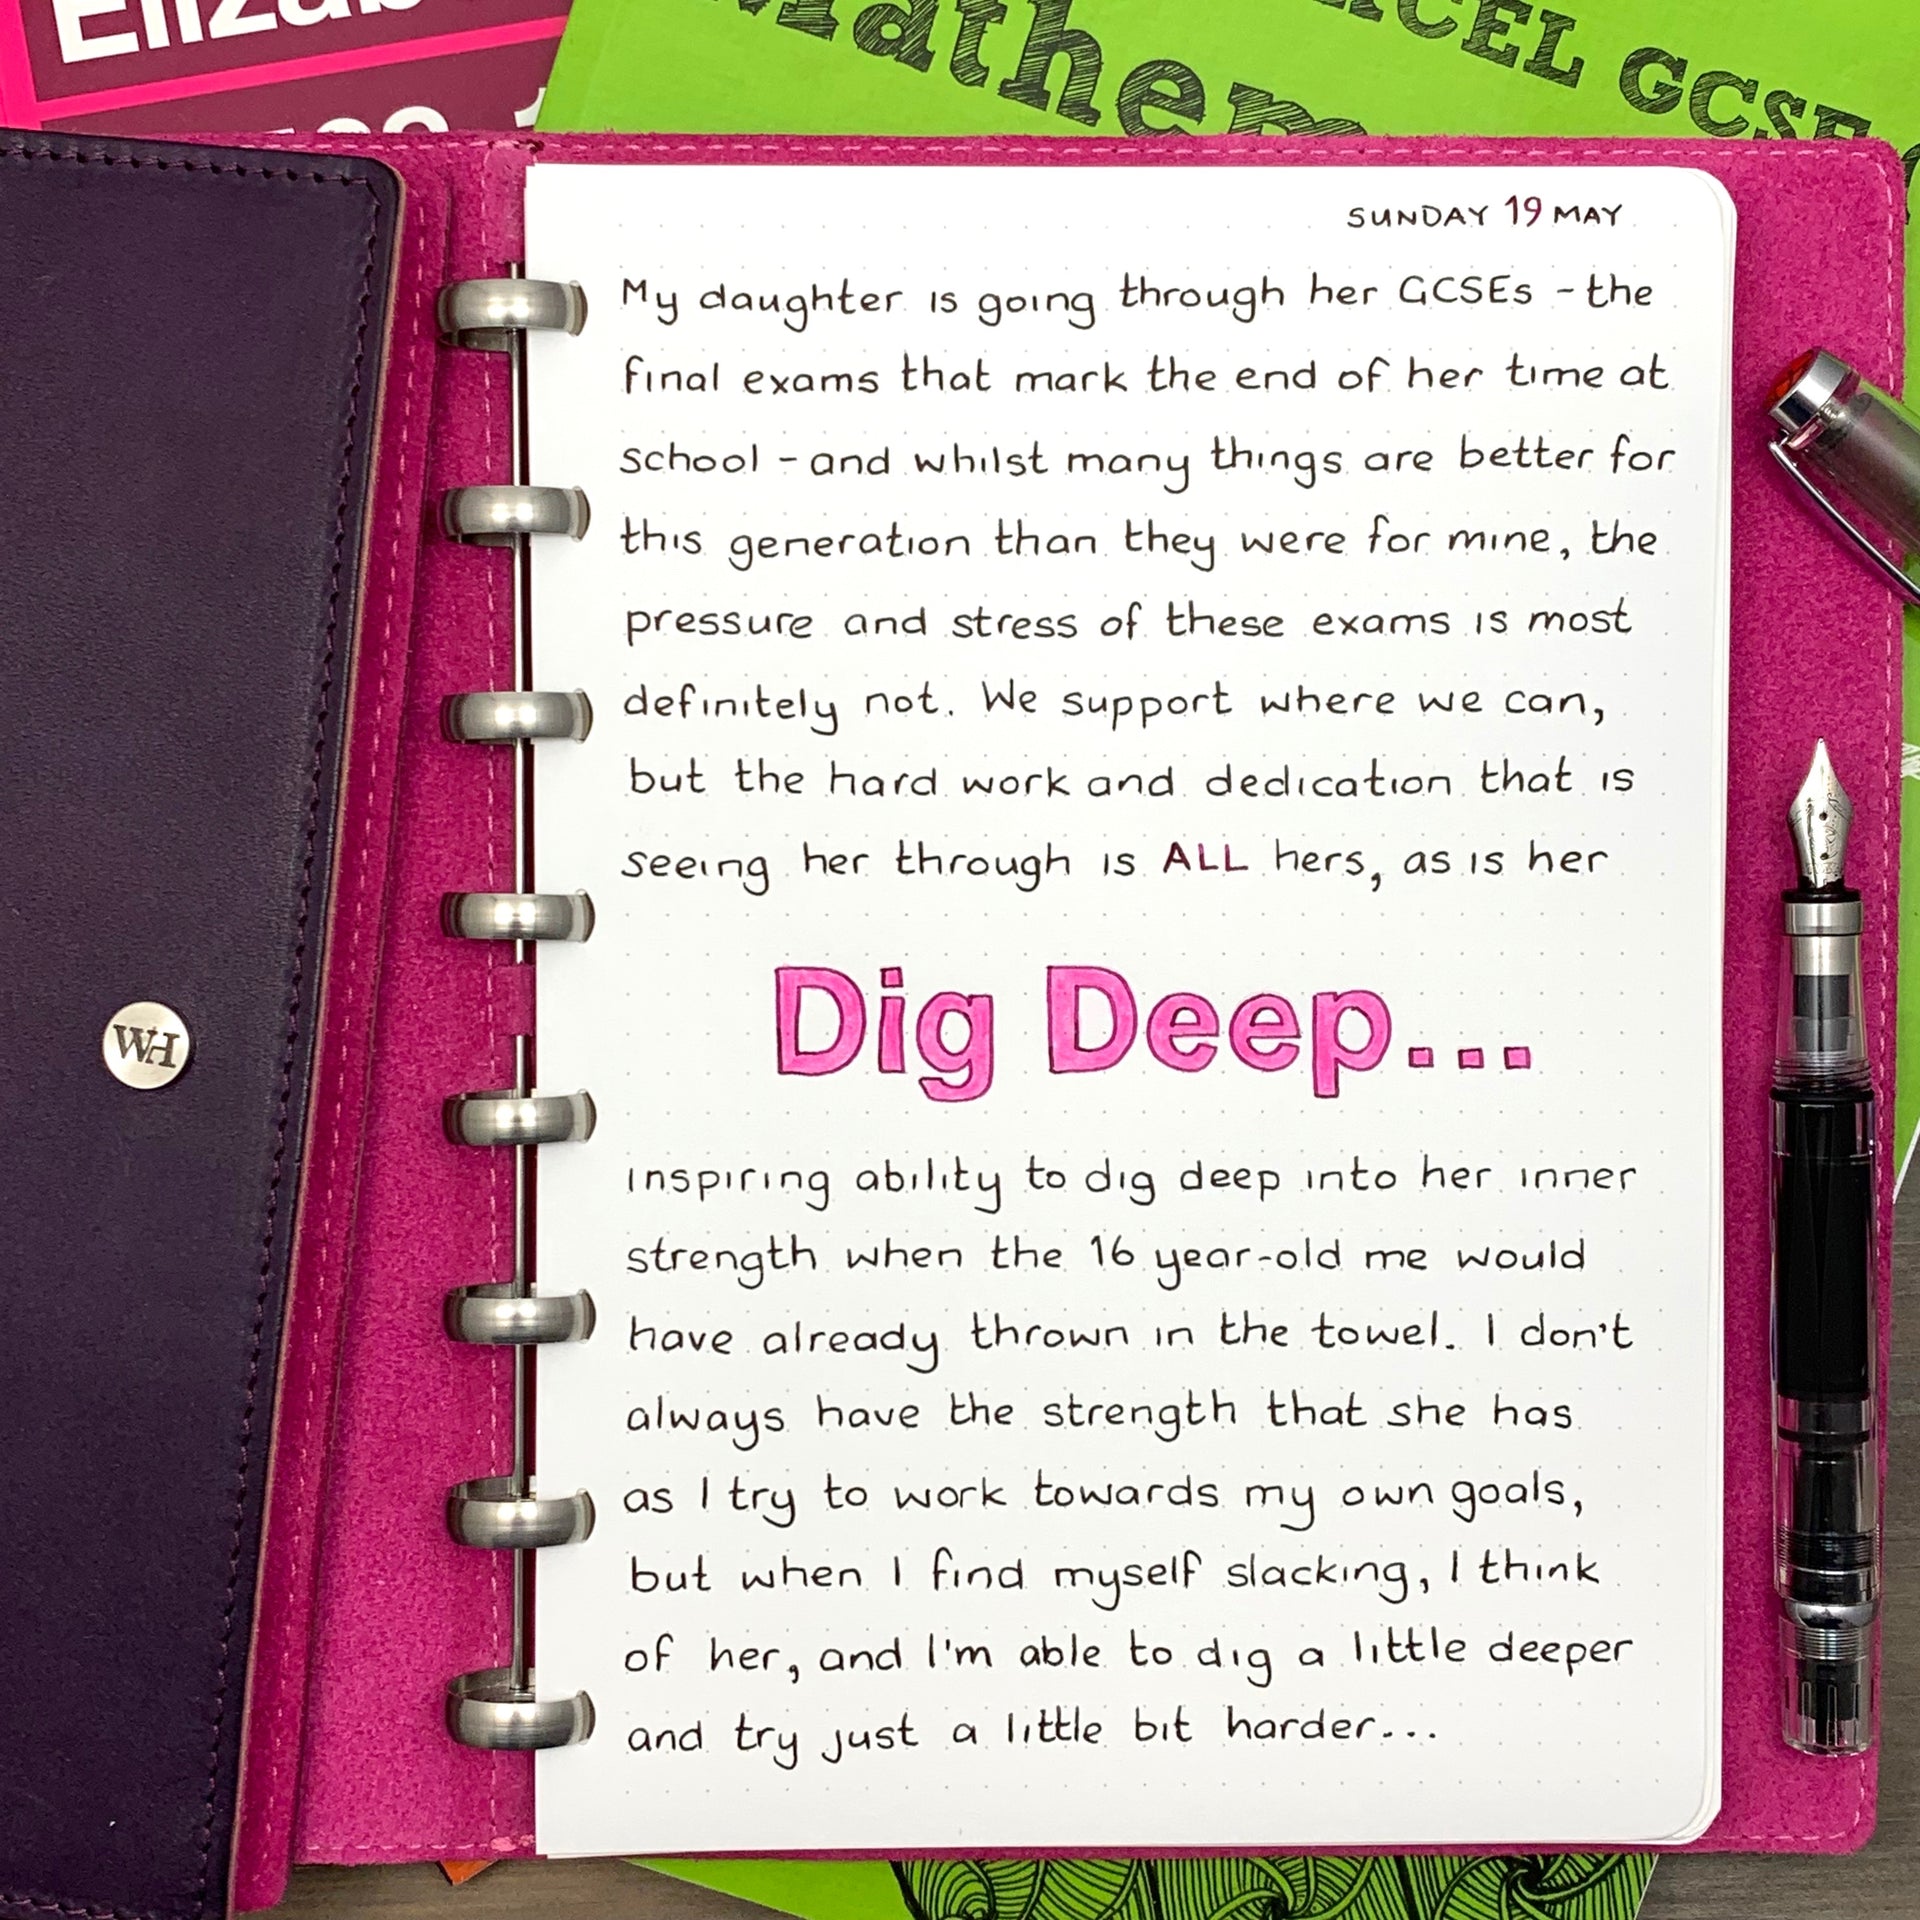 Mathem
GCSE
SUNDAY 19 MAY
My daughter is going through her GCSEs - the
final exams that mark the end of her time at
school - and whilst many things are better for
this generation than they were for mine, the
pressure and stress of these exams is most
definitely not. We support where we can,
but the hard work and dedication that is
seeing her through is ALL hers, as is her
Dig Deep...
inspiring ability to dig deep into her inner
strength when the 16 year-old me would
have already thrown in the towel. I don't
always have the strength that she has
as I try to work towards my own goals,
but when I find myself slacking, I think
of her, and I'm able to dig a little deeper
and try just a little bit harder...
WH